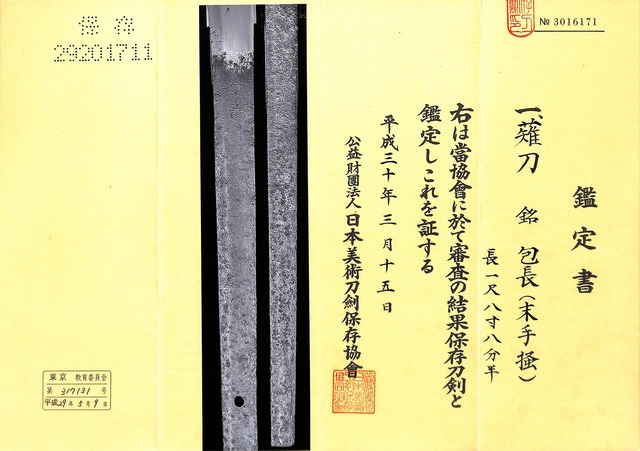 № 3016171
鑑定書
一、薙刀 銘 包長(末手掻)
長一尺八寸八分半
右は當協會に於て審査の結果保存刀剣と
鑑定しこれを証する
平成三十年三月十五日
公益財團法人日本美術刀劍保存協會
保存
29201711
東京 教育委員会
第 317131 号
平成29年5月9日